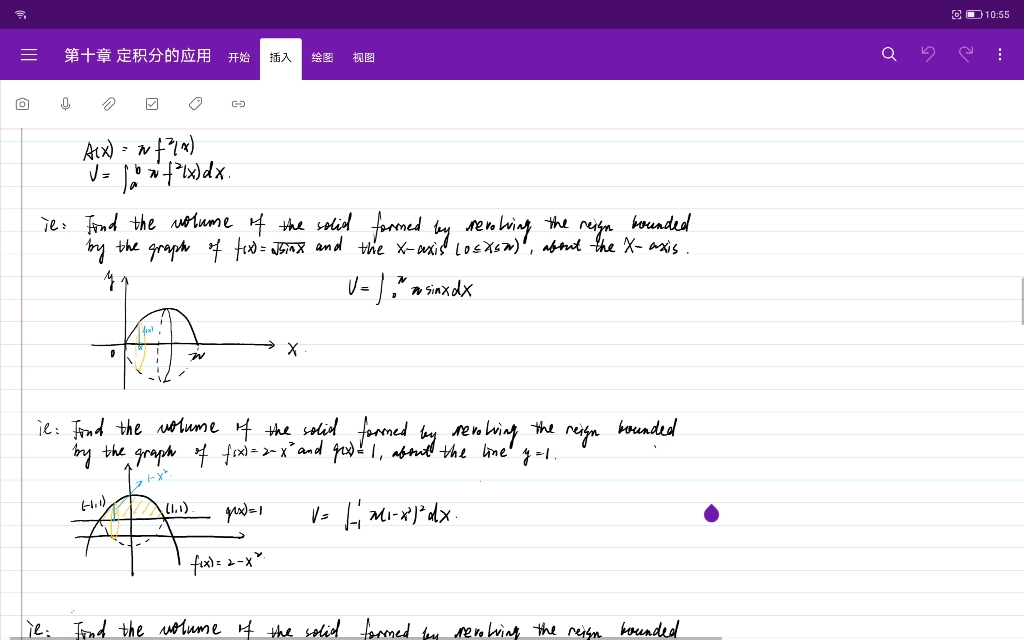 10:55
第十章 定积分的应用 开始 插入 绘图 视图
A(x) = π f²(x)
V = ∫_a^b π f²(x)dx.
ie: Find the volume of the solid formed by revolving the reign bounded
by the graph of f(x) = √sinx and the x-axis (0≤x≤π), about the x-axis.
y
V = ∫_0^π π sinx dx
f(x)
0
π
x
ie: Find the volume of the solid formed by revolving the reign bounded
by the graph of f(x) = 2-x² and g(x) = 1, about the line y=1.
1-x²
(-1,1)
(1,1)
g(x)=1
V = ∫_{-1}^1 π(1-x²)² dx.
f(x) = 2-x²
ie: Find the volume of the solid formed by revolving the reign bounded